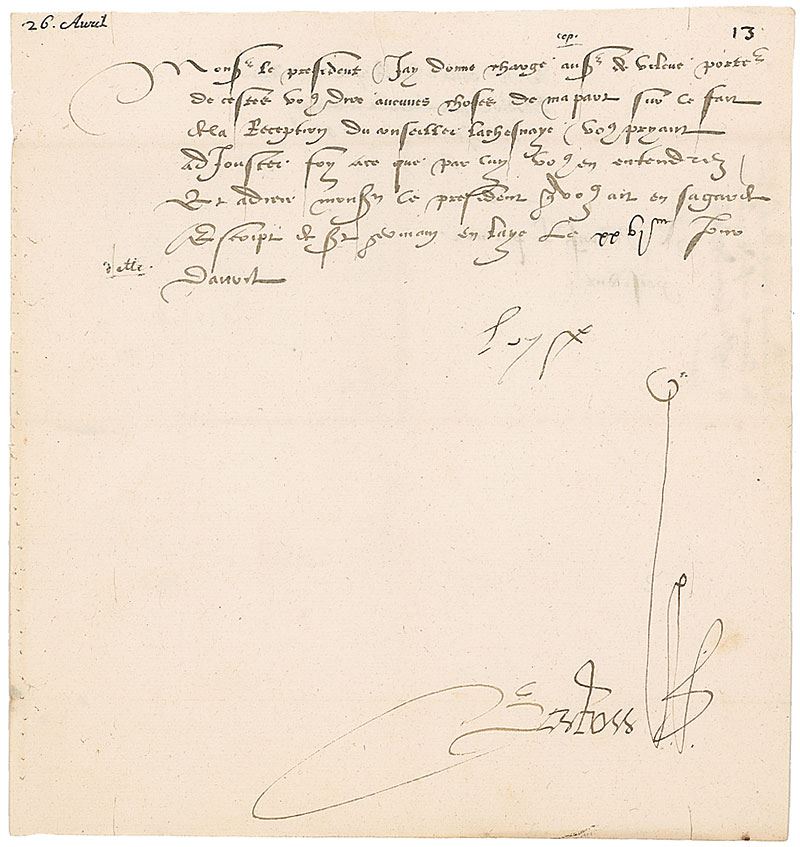 26. Avril
13
Monsr le president Jay donne charge au Sr de porter
de cestes vous dire aucunes choses de ma part sur le fait
de la Reception du conseiller lachesnaye Vous pryant
adJouster foy ace que par luy vous en entendrez
Et adieu monsr le president qui vous ait en sa garde
Escript a St germain en laye Le xxvi me Jour
davril
Loyse